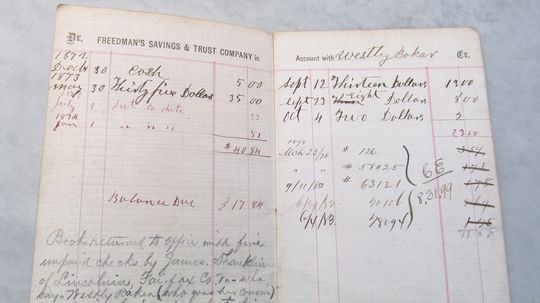 Dr. FREEDMAN'S SAVINGS & TRUST COMPANY in
1872
Dec 30 Cash 5 00
1873
May 30 Thirty five Dollars 35 00
July 1 Int to date 33
1874
Jan 1 " " " 51
$ 40.84
Balance Due $ 17 84
Book returned to office with five
unpaid checks by James Franklin
of Lincolnia, Fairfax Co. Va - who
says Westly Baker (who was his cousin)
Account with Westly Baker Cr.
Sept 12 Thirteen Dollars 13 00
Sept 23 Eight Dollars 8 00
Oct 4 Two Dollars 2
23 00
Mch 23/78 # 126
" " # 58025
9/11/80 # 63121
40166
6/4/83 48094
6E
8,31,99